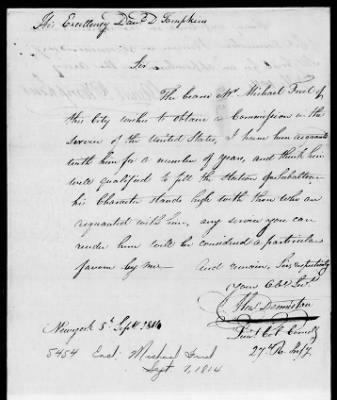 His Excellency Danl. D Tompkins
Sir
The bearer Mr. Michael
this City wishes to obtain a Commission in the
Service of the United States, I have been acquain
ted with him for a number of years, and think him
well qualified to fill the Station of Subaltern
his Character stands high with those who are
acquainted with him, any service you can
render him will be considered a particular
favour by me And remain, Sir, respectfully
your Obt. Servt.
Thos. Denniston
Lieut Col. Comdg
27th R. Infy
Newyork 5th Septr. 1814
5454 Encl. Michael
Sept 7, 1814